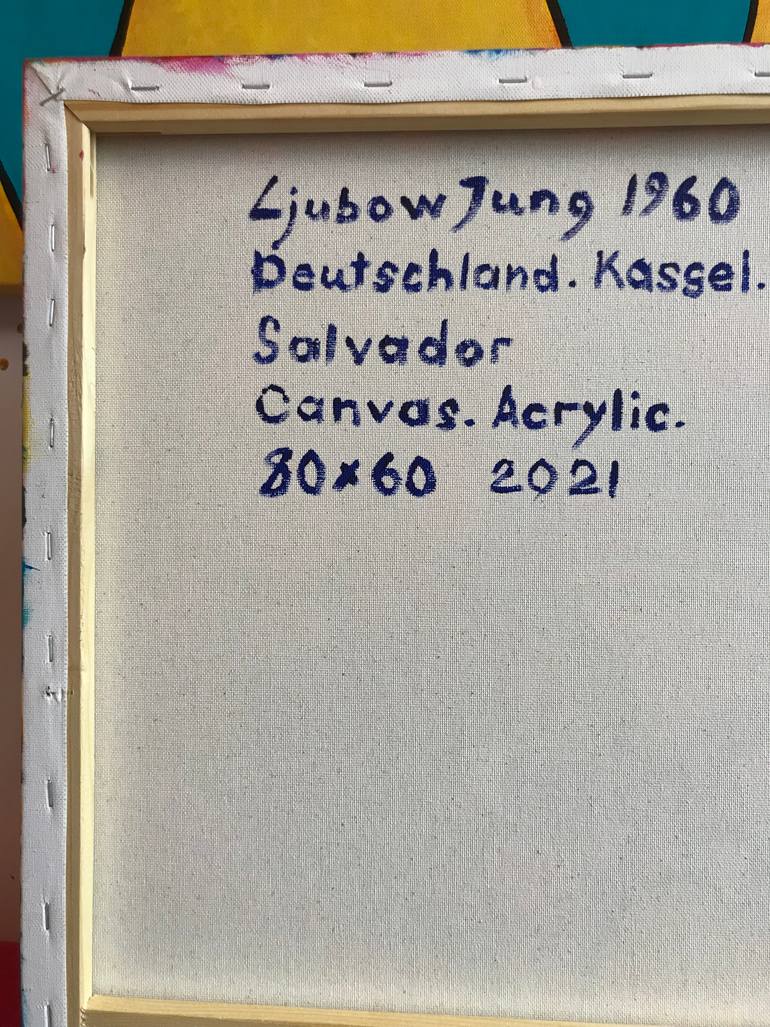 Ljubow Jung 1960
Deutschland. Kassel.
Salvador
Canvas. Acrylic.
80×60 2021